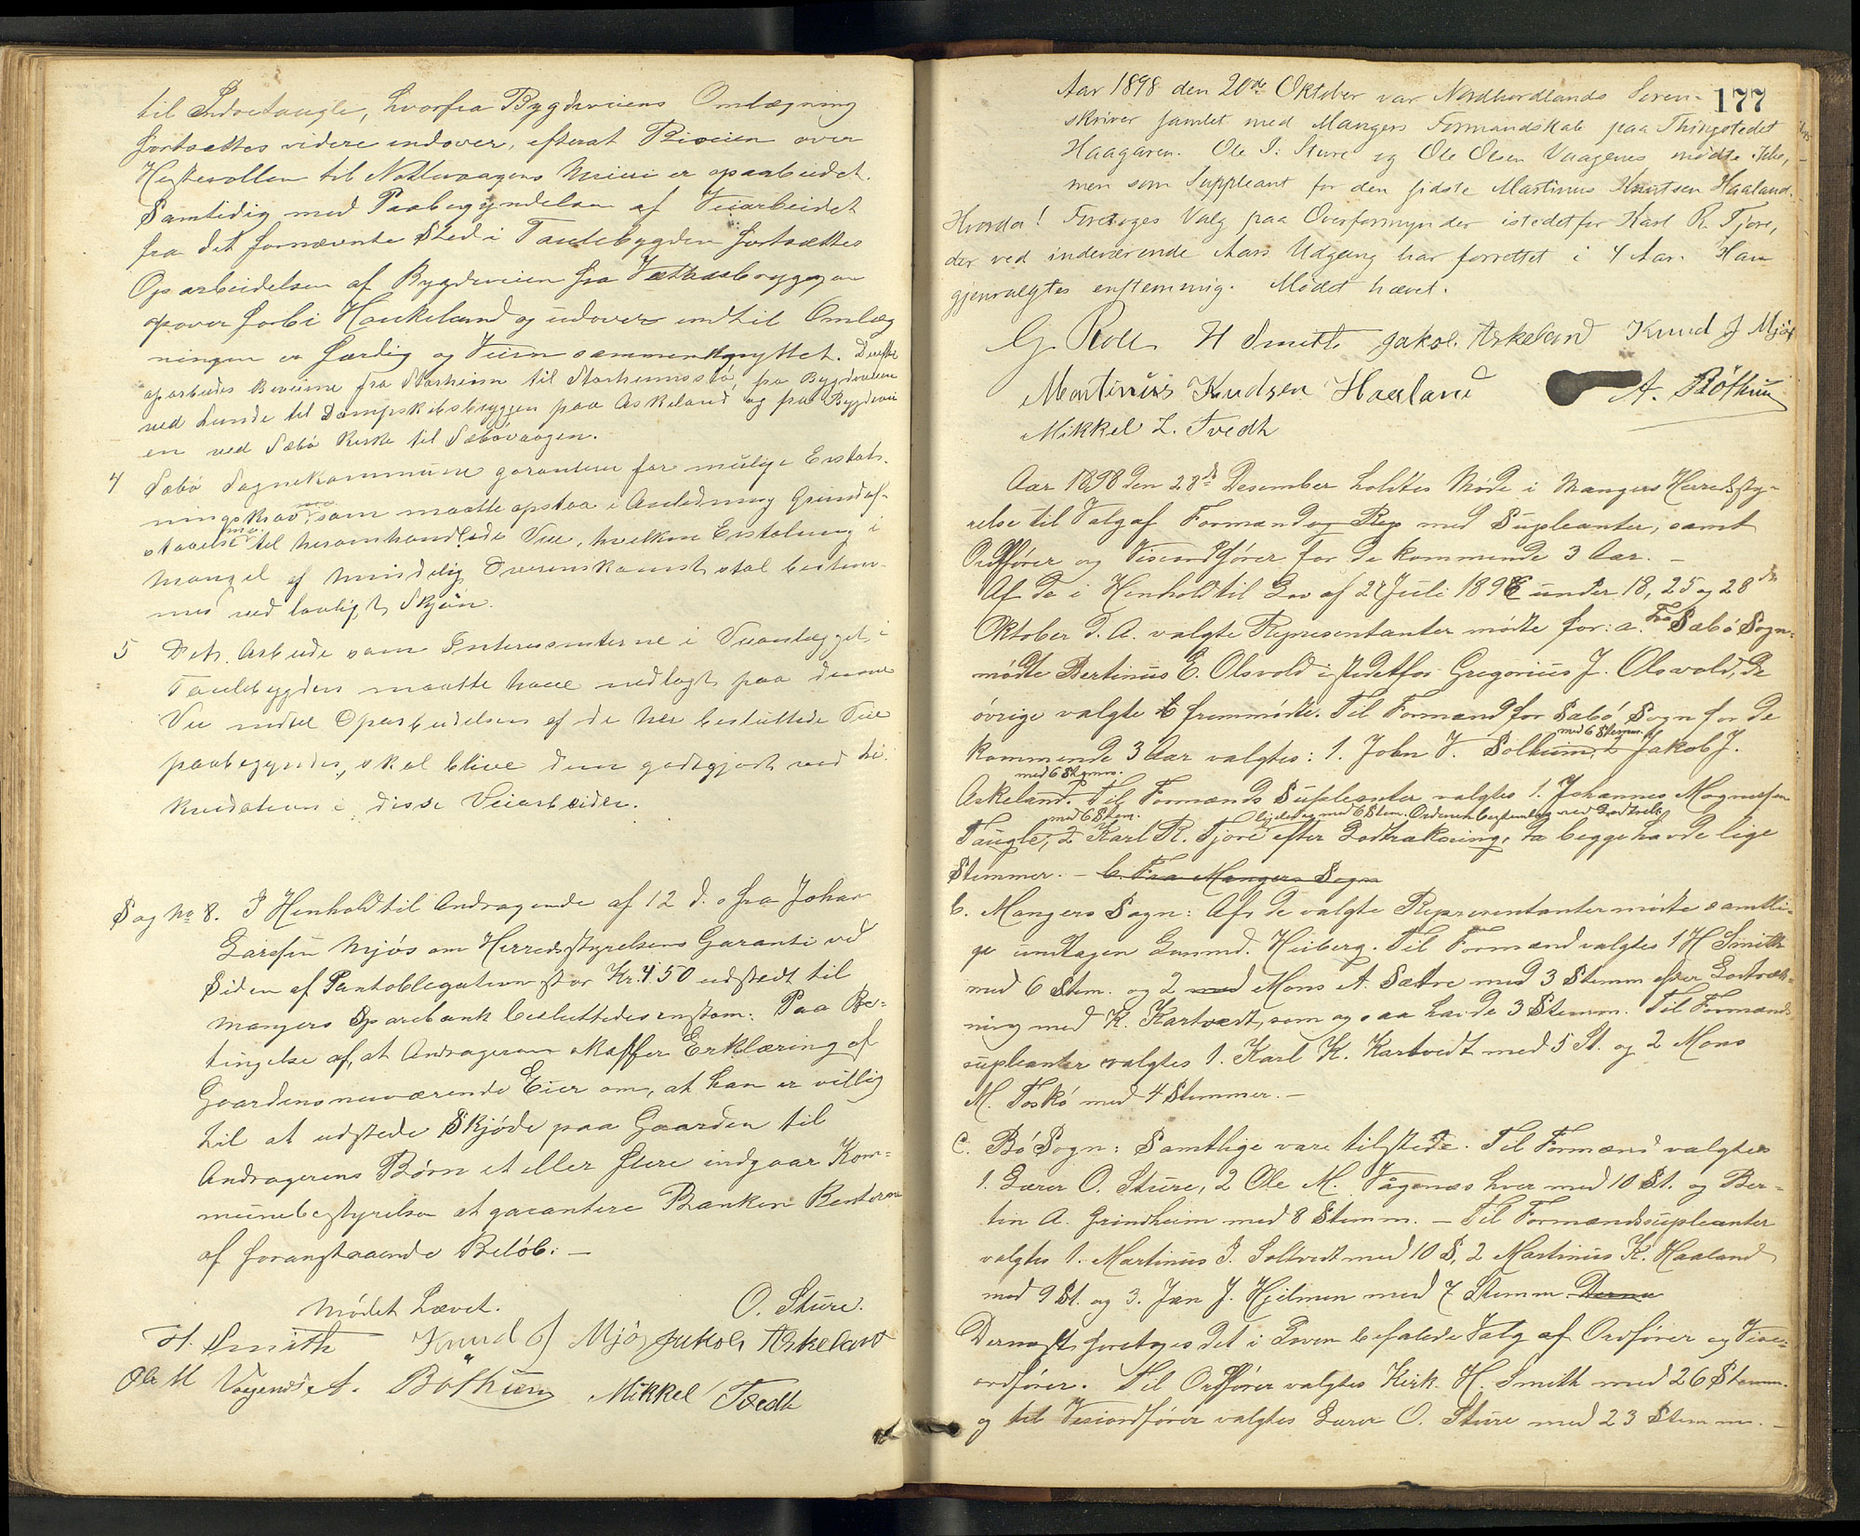 til Indretaugle, hvorfra Bygdeveiens Omlægning
fortsættes videre indover, efterat Biveien over
Hestevollen til Nottevaagens Mini er oparbeidet.
Samtidig med Paabegyndelsen af Veiarbeidet
fra det fornævnte Sted i Tauglebygden fortsættes
Oparbeidelsen af Bygdeveien fra Vetaasbryggen
opover forbi Haukeland og udover indtil Omlæg
ningen er færdig og Veien sammenknyttet. Derefter
oparbeides Biveiene fra Storheim til Storheimsstø, fra Bygdeveien
ved Lunde til Dampskibsbryggen paa Askeland og fra Bygdevei
en ved Sæbø Kirke til Sæbøvaagen.
4 Sæbø Sognekommune garanterer for mulige Erstat-
ningskrav som maatte opstaa i Anledning Grundaf-
staaelse til heromhandlede Veie, hvilken Erstatning i
Mangel af mindelig Overenskomst skal bestem-
mes ved lovligt Skjøn.
5 Det Arbeide som Interessenterne i Veianlægget i
Tauglebygden maatte have nedlagt paa denne
Vei inden Oparbeidelsen af de her besluttede Veie
paabegyndes, skal blive dem godtgjort ved Li-
kvidation i disse Veiarbeider.
Sag No 8. I Henhold til Andragende af 12 d. fra Johan
Larsen Mjøs om Herredsstyrelsens Garanti ved
Siden af Pantobligation stor Kr. 450 udstedt til
Mangers Sparebank besluttedes enstem: Paa Be-
tingelse af, at Andrageren skaffer Erklæring af
Gaardens nuværende Eier om, at han er villig
til at udstede Skjøde paa Gaarden til
Andragerens Børn et eller flere indgaar Kom-
munebestyrelsen at garantere Banken Renterne
af foranstaaende Beløb. —
Mødet hævet. O. Sture.
H. Smith Knud J Mjøs Jakob Askeland
Ole M Vaagenes A. Bøthun Mikkel Tvedt
177
Aar 1898 den 20de Oktober var Nordhordlands Soren-
skriver samlet med Mangers Formandskab paa Thingstedet
Haagaren. Ole I. Sture og Ole Olsen Vaagenes mødte ikke,
men som Suppleant for den sidste Martinus Knutsen Haaland.
Hvorda! Foretoges Valg paa Overformynder istedetfor Karl R. Fjore,
der ved indeværende Aars Udgang har forrettet i 4 Aar. Han
gjenvalgtes enstemmig. Mødet hævet.
G. Roll H Smith Jakob Askeland Knud J Mjøs
Martinus Knudsen Haaland A. Bøthun
Mikkel L. Tvedt
Aar 1898 den 28de Desember holdtes Møde i Mangers Herredssty-
relse til Valg af Formænd og Rep med Supleanter, samt
Ordfører og Viseordfører for de kommende 3 Aar. —
Af de i Henhold til Lov af 27 Juli 1896 under 18, 25 og 28de
Oktober d. A. valgte Representanter mødte for: a. Fra Sæbø Sogn:
mødte Bertinus E. Olsvold istedetfor Gregorius J. Olsvold, de
øvrige valgte 6 fremmødte. Til Formænd for Sæbø Sogn for de
med 6 Stemm. af
kommende 3 Aar valgtes: 1. John V. Solheim, 2 Jakob J.
med 6 Stemm.
Askeland. Til Formænds Supleanter valgtes 1. Johannes Magnesen
med 6 Stem. ligeledes med 6 Stem. Ordenen bestemtes ved Lodtræk
Taugle, 2 Karl R. Fjore efter Lodtrækning, da begge havde lige
Stemmer. — b. Fra Mangers Sogn
b. Mangers Sogn: Af de valgte Representanter mødte samtli-
ge undtagen Gunnd. Heiberg. Til Formænd valgtes 1 H Smith
med 6 Stem. og 2 med Mons A. Sætre med 3 Stemm efter Lodtræk-
ning med K. Kartvedt, som ogsaa havde 3 Stemm. Til Formænds
supleanter valgtes 1. Karl K. Kartvedt med 5 St. og 2 Mons
M. Toskø med 4 Stemmer. —
c. Bø Sogn: Samtlige vare tilstede. Til Formænd valgtes
1. Lærer O. Sture, 2 Ole M. Vågenes hver med 10 St. og Ber-
tin A. Grindheim med 8 Stemm. — Til Formændssupleanter
valgtes 1. Martinus I. Soltvedt med 10 S, 2 Martinus K. Haaland
med 9 St. og 3. Jan J. Hjelmen med 7 Stemm. Derna
Dernæst foretoges det i Loven befalede Valg af Ordfører og Vise-
ordfører. Til Ordfører valgtes Kirk. H. Smith med 26 Stemm.
og til Viseordfører valgtes Lærer O. Sture med 23 Stemm. —